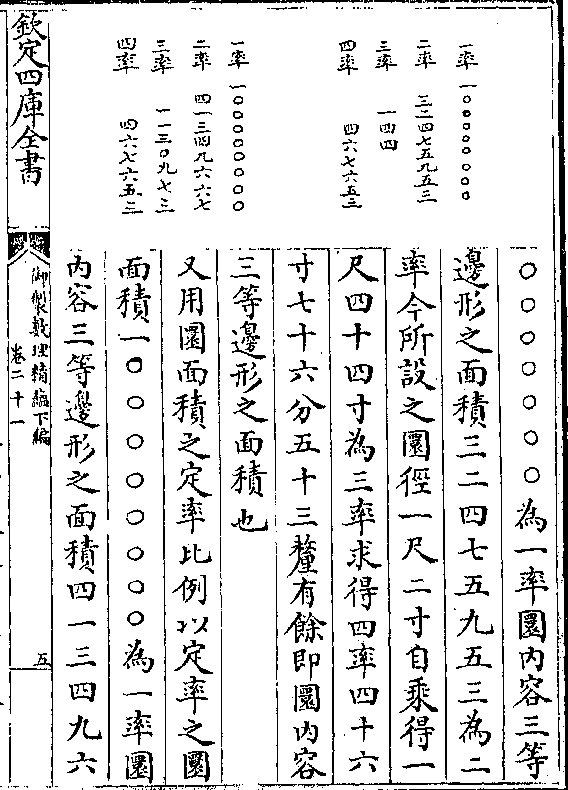 一率 一〇〇〇〇〇〇〇〇
二率 三二四七五九五三
三率 一四四
四率 四六七六五三
一率 一〇〇〇〇〇〇〇〇
二率 四一三四九六六七
三率 一一三〇九七三
四率 四六七六五三
〇〇〇〇〇〇〇為一率圜内容三等
邊形之面積三二四七五九五三為二
率今所設之圜徑一尺二寸自乘得一
尺四十四寸為三率求得四率四十六
寸七十六分五十三釐有餘即圜内容
三等邊形之面積也
又用圜面積之定率比例以定率之圜
面積一〇〇〇〇〇〇〇〇為一率圜
内容三等邊形之面積四一三四九六
欽定四庫全書
御製數理精蘊下編
卷二十一
五